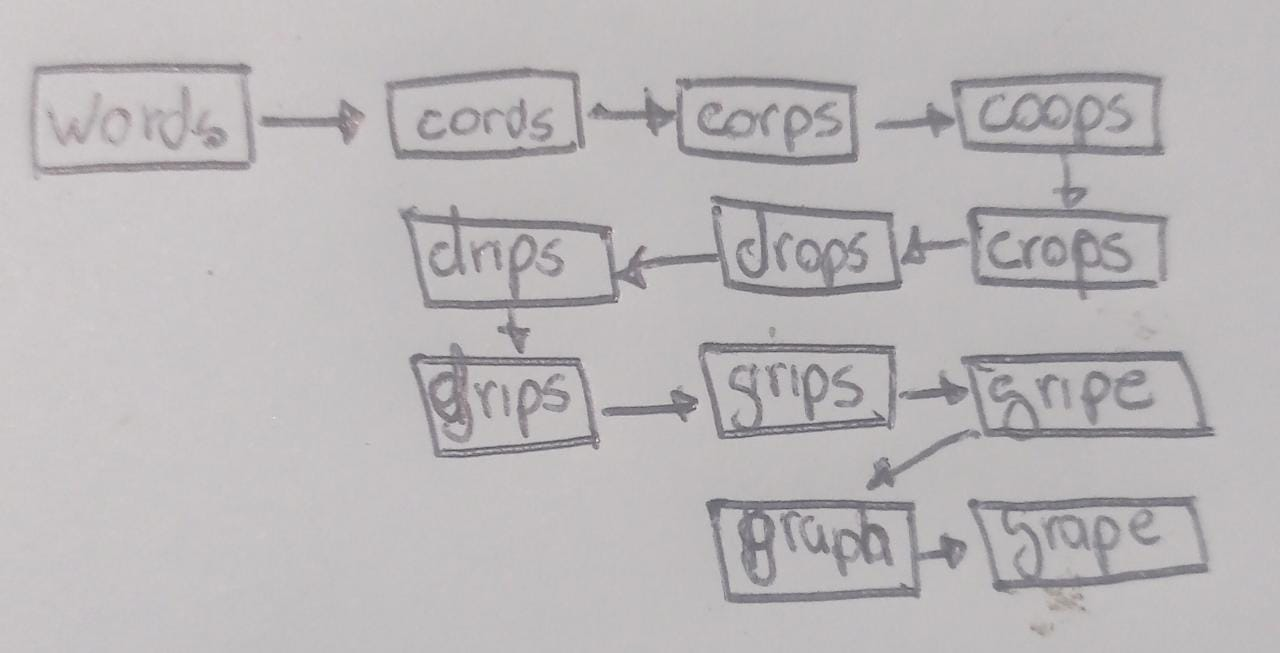 words cords corps coops
drips drops crops
grips grips gripe
graph grape